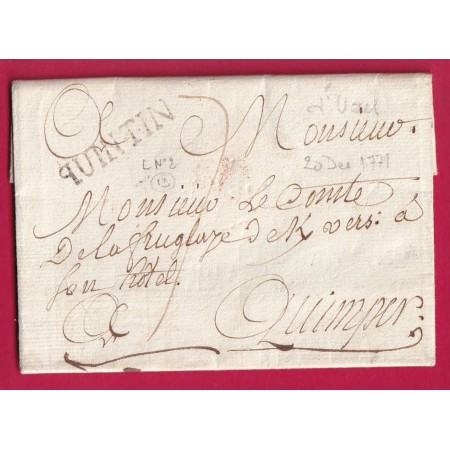 A Monsieur
QUINTIN
d'Uzel
20 Dec 1771
L N°2
13
Monsieur Le Comte
De la fruglaye de K vers: à
son hôtel.
A Quimper